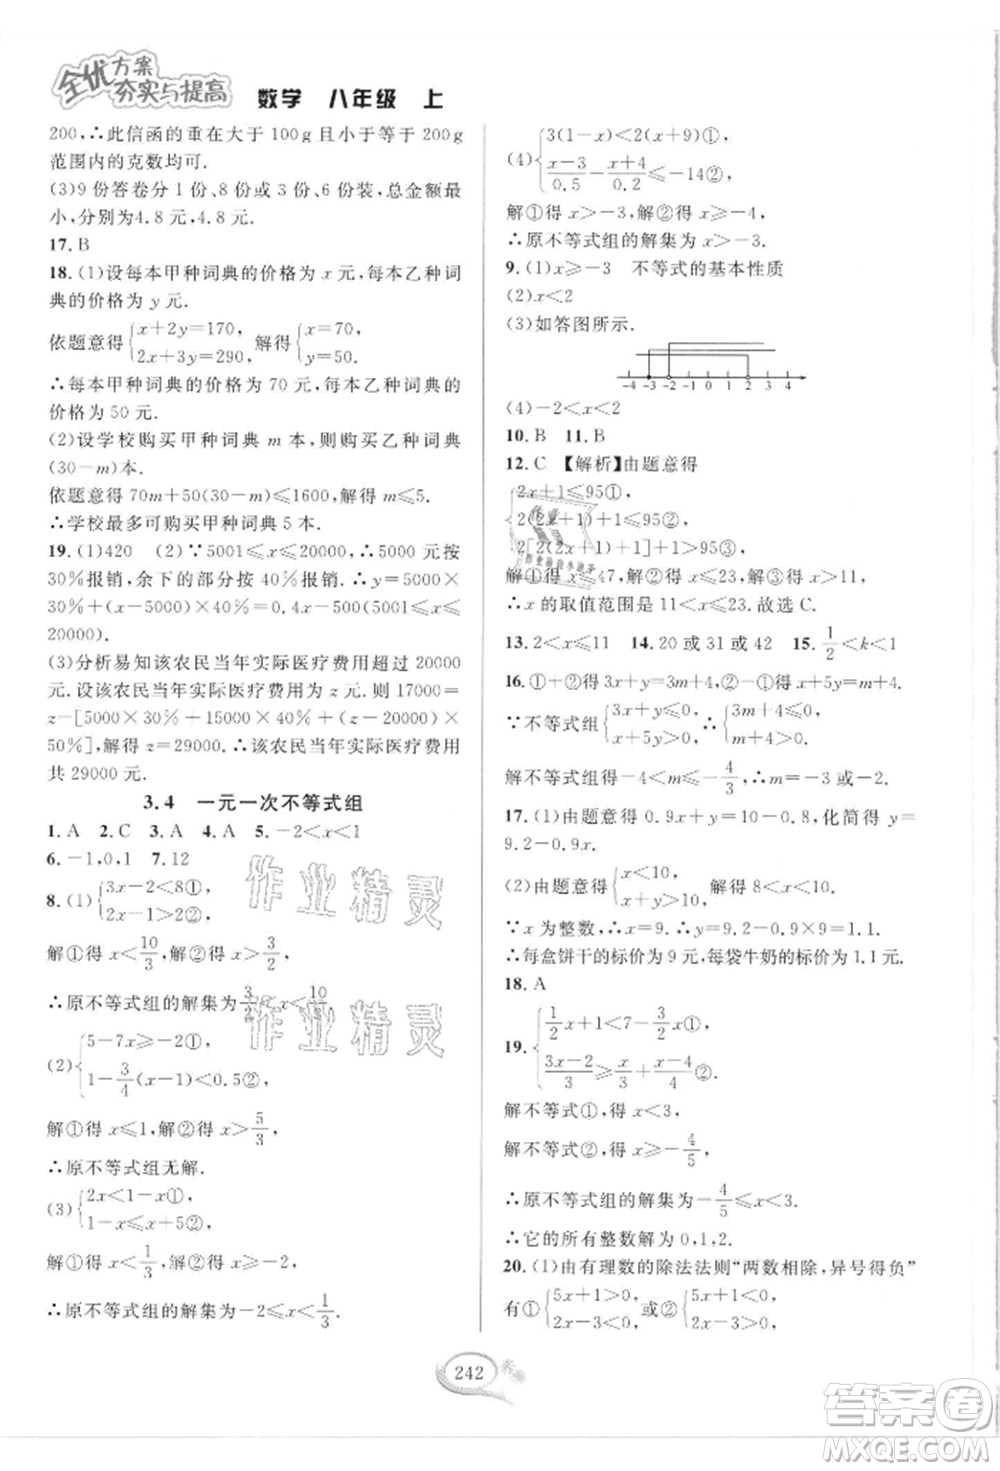 全优方案
夯实与提高 数学 八年级 上
200,∴此信函的重在大于 100g 且小于等于 200g
范围内的克数均可.
(3)9 份答卷分 1 份、8 份或 3 份、6 份装,总金额最
小,分别为4.8 元,4.8 元.
17. B
18. (1)设每本甲种词典的价格为 x 元,每本乙种词
典的价格为 y 元.
依题意得{x+2y=170, 2x+3y=290, 解得{x=70, y=50.
∴每本甲种词典的价格为 70 元,每本乙种词典的
价格为 50 元.
(2)设学校购买甲种词典 m 本,则购买乙种词典
(30-m)本.
依题意得 70m+50(30-m)≤1600,解得 m≤5.
∴学校最多可购买甲种词典 5 本.
19. (1)420 (2)∵5001≤x≤20000,其中 5000 元按
30%报销,余下的部分按 40%报销.∴y=5000×
30%+(x-5000)×40%=0.4x-500(5001≤x≤
20000).
(3)分析易知该农民当年实际医疗费用超过 20000
元.设该农民当年实际医疗费用为 z 元.则 17000=
z-[5000×30%+15000×40%+(z-20000)×
50%],解得 z=29000.∴该农民当年实际医疗费用
共 29000 元.
3.4 一元一次不等式组
1. A 2. C 3. A 4. A 5. -2<x<1
6. -1,0,1 7. 12
8. (1){3x-2<8①, 2x-1>2②,
解①得 x<10/3,解②得 x>3/2,
∴原不等式组的解集为3/2<x<10/3.
(2){5-7x≥-2①, 1-3/4(x-1)<0.5②,
解①得 x≤1,解②得 x>5/3,
∴原不等式组无解.
(3){2x<1-x①, 1-x≤x+5②,
解①得 x<1/3,解②得 x≥-2,
∴原不等式组的解集为-2≤x<1/3.
(4){3(1-x)<2(x+9)①, (x-3)/0.5-(x+4)/0.2≤-14②,
解①得 x>-3,解②得 x≥-4,
∴原不等式组的解集为 x>-3.
9. (1)x≥-3 不等式的基本性质
(2)x<2
(3)如答图所示.
-4 -3 -2 -1 0 1 2 3 4
(4)-2<x<2
10. B 11. B
12. C 【解析】由题意得
{2x+1≤95①, 2(2x+1)+1≤95②, 2[2(2x+1)+1]+1>95③,
解①得 x≤47,解②得 x≤23,解③得 x>11.
∴x 的取值范围是 11<x≤23.故选 C.
13. 2<x≤11 14. 20 或 31 或 42 15. 1/2<k<1
16. ①+②得 3x+y=3m+4,②-①得 x+5y=m+4.
∵不等式组{3x+y≤0, x+5y>0, ∴{3m+4≤0, m+4>0,
解不等式组得-4<m≤-4/3,则 m=-3,-2.
17. (1)由题意得 0.9x+y=10-0.8,化简得 y=
9.2-0.9x.
(2)由题意得{x<10, x+y>10, 解得 8<x<10.
∵x 为整数,∴x=9.∴y=9.2-0.9×9=1.1.
∴每盒饼干的标价为 9 元,每袋牛奶的标价为 1.1 元.
18. A
19. {1/2x+1<7-3/2x①, (3x-2)/3≥x/3+(x-4)/2②.
解不等式①,得 x<3,
解不等式②,得 x≥-4/5,
∴原不等式组的解集为-4/5≤x<3.
∴它的所有整数解为 0,1,2.
20. (1)由有理数的除法法则“两数相除,异号得负”
有①{5x+1>0, 2x-3<0, 或②{5x+1<0, 2x-3>0,
242
作业精灵
作业精灵
答案圈
MXQE.COM